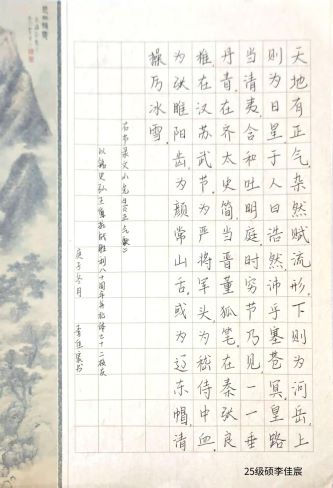 天地有正气，杂然赋流形。下则为河岳，上
则为日星。于人曰浩然，沛乎塞苍冥。皇路
当清夷，含和吐明庭。时穷节乃见，一一垂
丹青。在齐太史简，在晋董狐笔。在秦张良
椎，在汉苏武节。为严将军头，为嵇侍中血。
为张睢阳齿，为颜常山舌。或为辽东帽，清
操厉冰雪。
右节录文
正气歌》
抗战胜利八十周年
冬月 李佳宸书
25级硕李佳宸